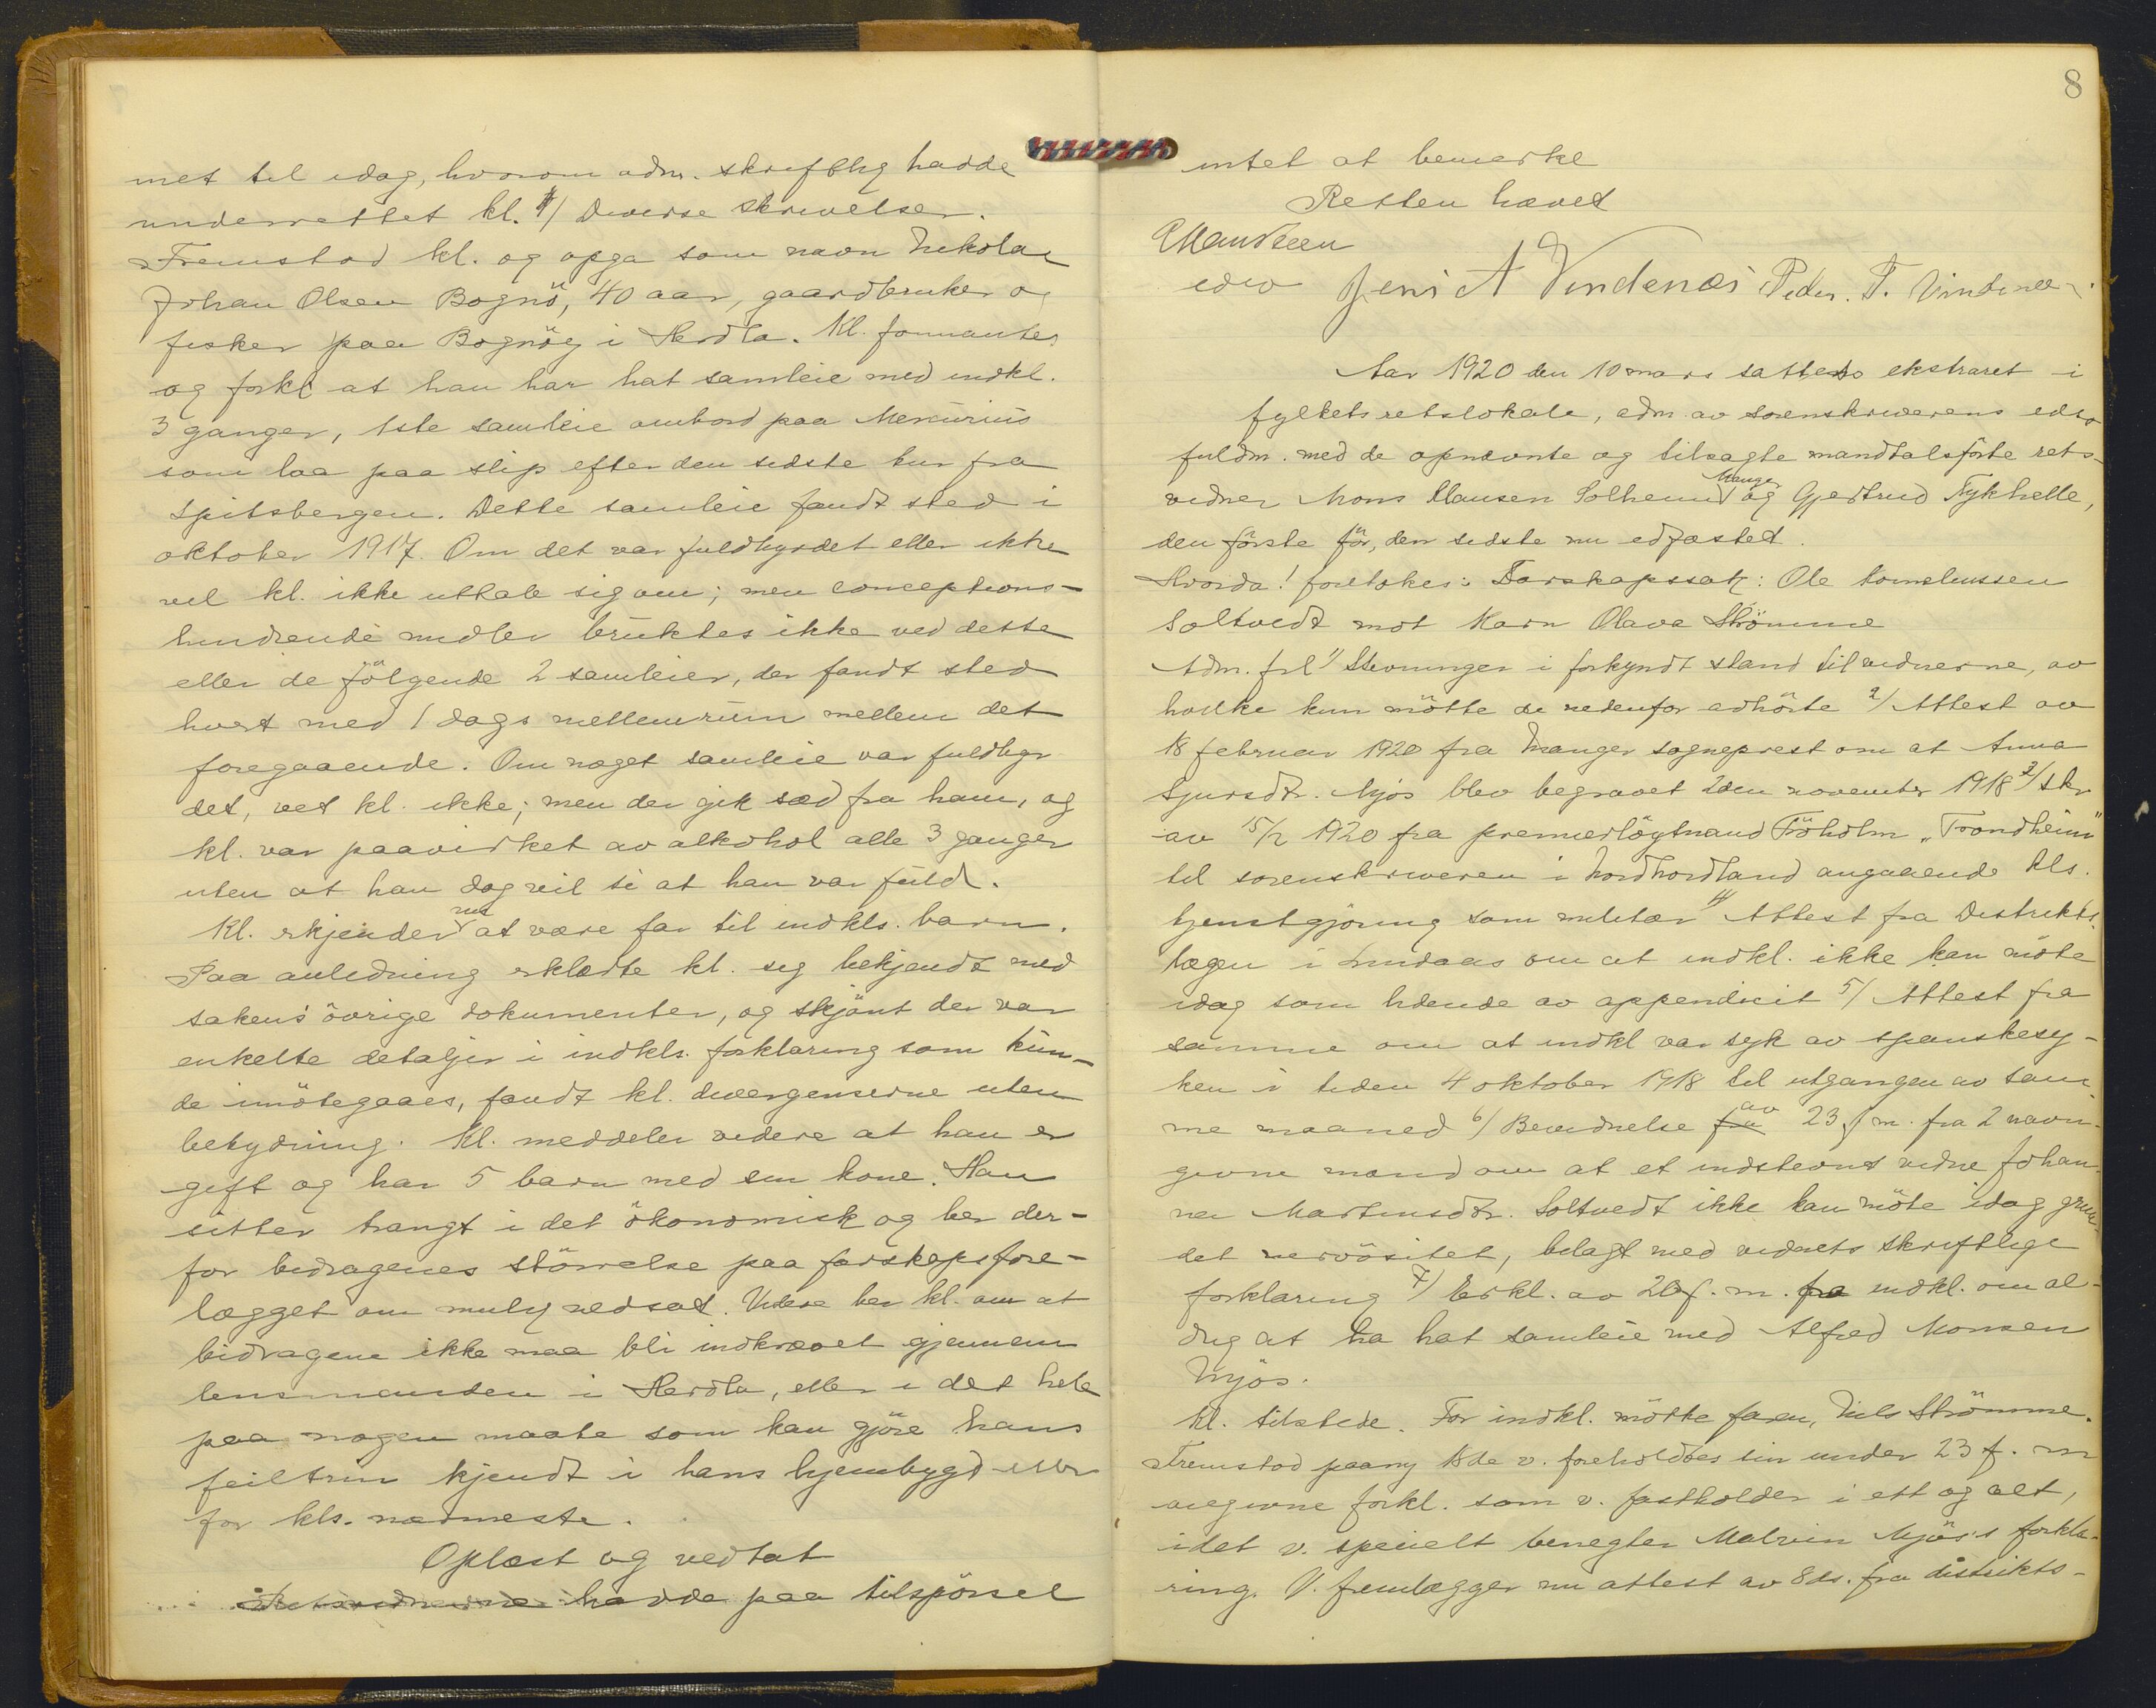 met til idag, hvorom adm. skriftlig hadde
underrettet kl. 4/ Diverse skrivelser.
Fremstod kl. og opga som navn Nikolai
Johan Olsen Bognö, 40 aar, gaardbruker og
fisker paa Bognöy i Herdla. Kl. formantes
og forkl at han har hat samleie med indkl.
3 ganger, 1ste samleie ombord paa Mercurius
som laa paa slip efter den sidste tur fra
Spitsbergen. Dette samleie fandt sted i
oktober 1917. Om det var fuldbyrdet eller ikke
vil kl. ikke uttale sig om; men conceptions-
hindrende midler bruktes ikke ved dette
eller de fölgende 2 samleier, der fandt sted
hvert med 1 dags mellemrum mellem det
foregaaende. Om noget samleie var fuldbyr
det, vet kl. ikke; men der gik sæd fra ham, og
kl. var paavirket av alkohol alle 3 ganger
uten at han dog vil si at han var fuld.
Kl. erkjender at være far til indkls. barn.
Paa anledning erklærte kl. sig bekjendt med
sakens övrige dokumenter, og skjönt der var
enkelte detaljer i indkls. forklaring som kun-
de imötegaaes, fandt kl. divergenserne uten
betydning. Kl. meddeler videre at han er
gift og har 5 barn med sin kone. Han
sitter trangt i det ökonomisk og ber der-
for bidragenes störrelse paa farskapsfore-
lægget om mulig nedsat. Videre ber kl. om at
bidragene ikke maa bli indkrævet gjennem
lensmanden i Herdla, eller i det hele
paa nogen maate som kan gjöre hans
feiltrin kjendt i hans hjembygd eller
for kls. nærmeste.
Oplæst og vedtat
Retsvidnerne hadde paa tilspörsel
8
intet at bemerke
Retten hævet
edsv Jens A Vindenæs Peder. T. Vindenes.
Aar 1920 den 10 mars sattes ekstraret i
fylkets retslokale, adm. av sorenskriverens edsv
fuldm. med de opnævnte og tilsagte mandtalsförte rets-
vidner Mons Clausen Solheim Manger og Gjertrud Tykhelle,
den förste för, den sidste nu edfæstet.
Hvorda! foretokes: Farskapssak: Ole Cornelinssen
Soltvedt mot Karn Olava Strömme
Adm. frl 1/ Stevninger i forkyndt stand til vidnerne, av
hvilke kun mötte de nedenfor avhörte 2/ Attest av
18 februar 1920 fra Manger sogneprest om at Anna
Sjursdtr. Mjös blev begravet 2den november 1918 3/ Skr
av 15/2 1920 fra premierlöytnand Fröholm "Trondheim"
til sorenskriveren i Nordhordland angaaende kls.
tjenstgjöring som militær 4/ Attest fra Distrikts-
lægen i Lindaas om at indkl. ikke kan möte
idag som lidende av appendicit 5/ Attest fra
samme om at indkl var syk av spanskesy-
ken i tiden 4 oktober 1918 til utgangen av sam
me maaned 6/ Bevidnelse fra av 23 f. m. fra 2 navn-
givne mænd om at et indstevnt vidne Johan-
na Martinsdtr. Soltvedt ikke kan möte idag grun-
det nervösitet, bilagt med vidnets skriftlige
forklaring 7/ Erkl. av 20 f. m. fra indkl. om al-
drig at ha hat samleie med Alfred Monsen
Mjös.
Kl. tilstede. For indkl. mötte faren, Nils Strömme.
Fremstod paany 18de v. foreholdtes sin under 23 f. m
avgivne forkl. som v. fastholder i ett og alt,
idet v. specielt benegter Malvin Mjös's forkla-
ring. V. fremlægger nu attest av 8 ds. fra distrikts-